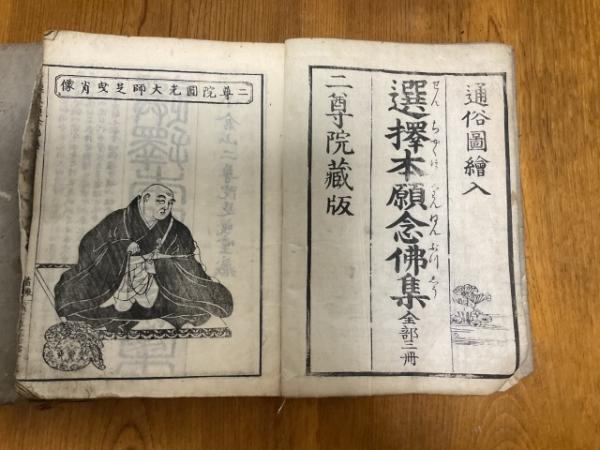 通俗圖繪入
選擇本願念佛集全部三冊
せんちやくほんぐわんねんぶつしう
二尊院藏版
二尊院圓光大師足曳肖像